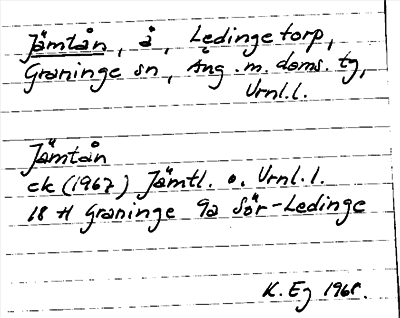 Jämtån, å, Ledingetorp,
Graninge sn, Ång. m. doms. tg,
Vrnl.l.
Jämtån
ek (1967) Jämtl. o. Vrnl. l.
18 H Graninge 9a Sör-Ledinge
K. Eg 1968.